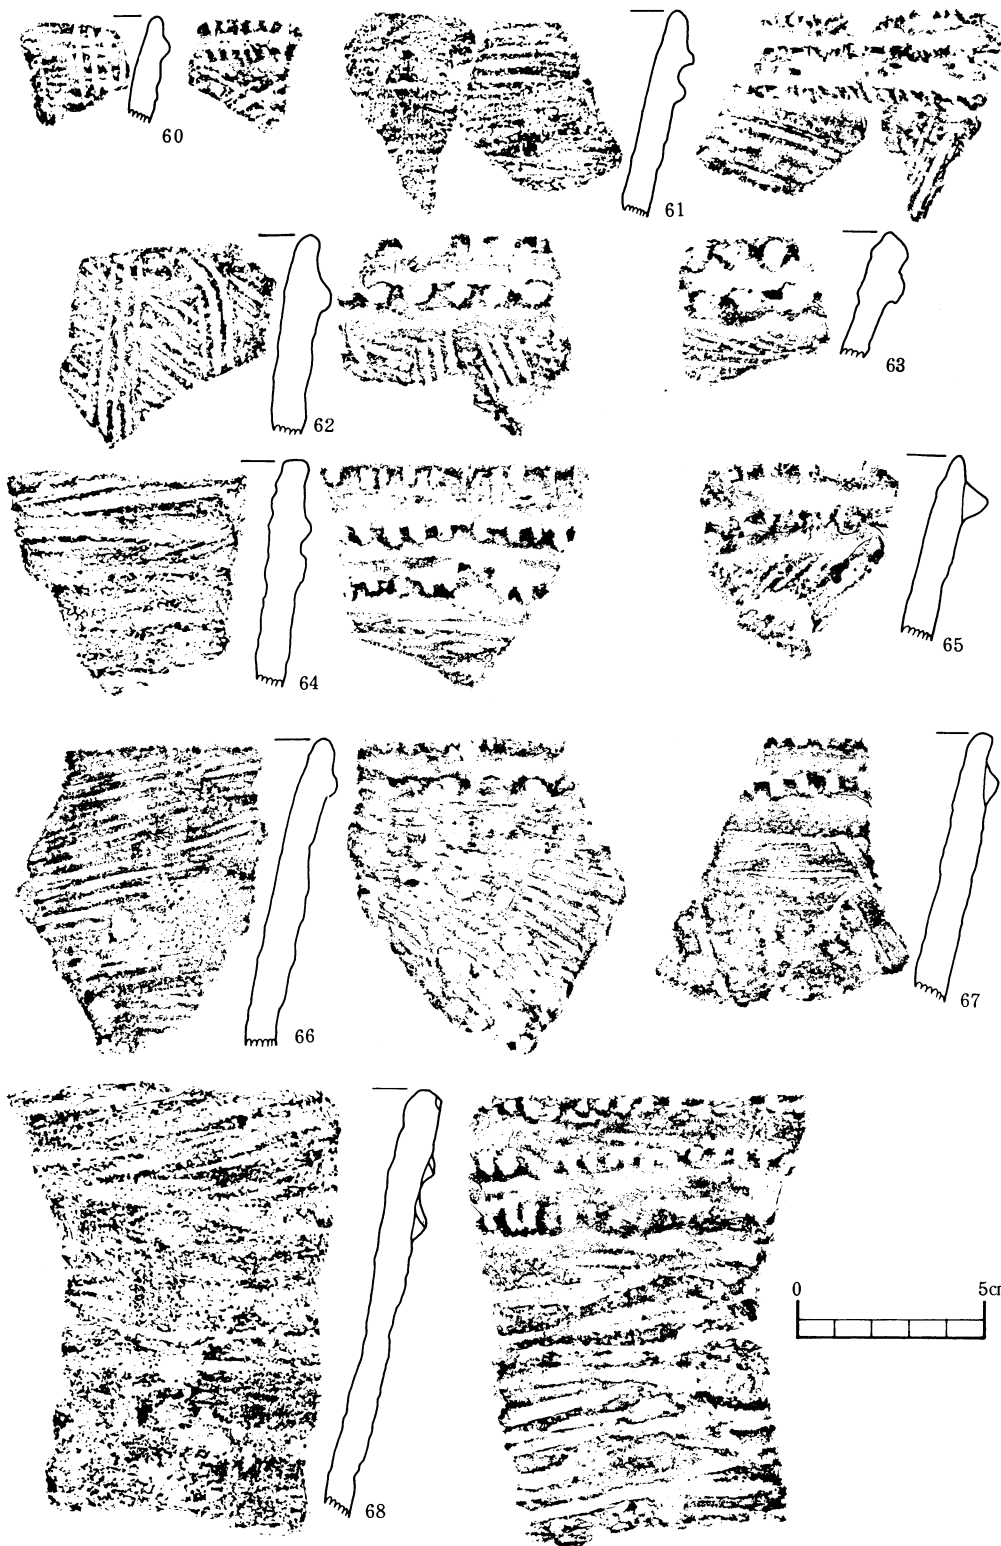 60
61
62
63
64
65
66
67
68
0 5cm